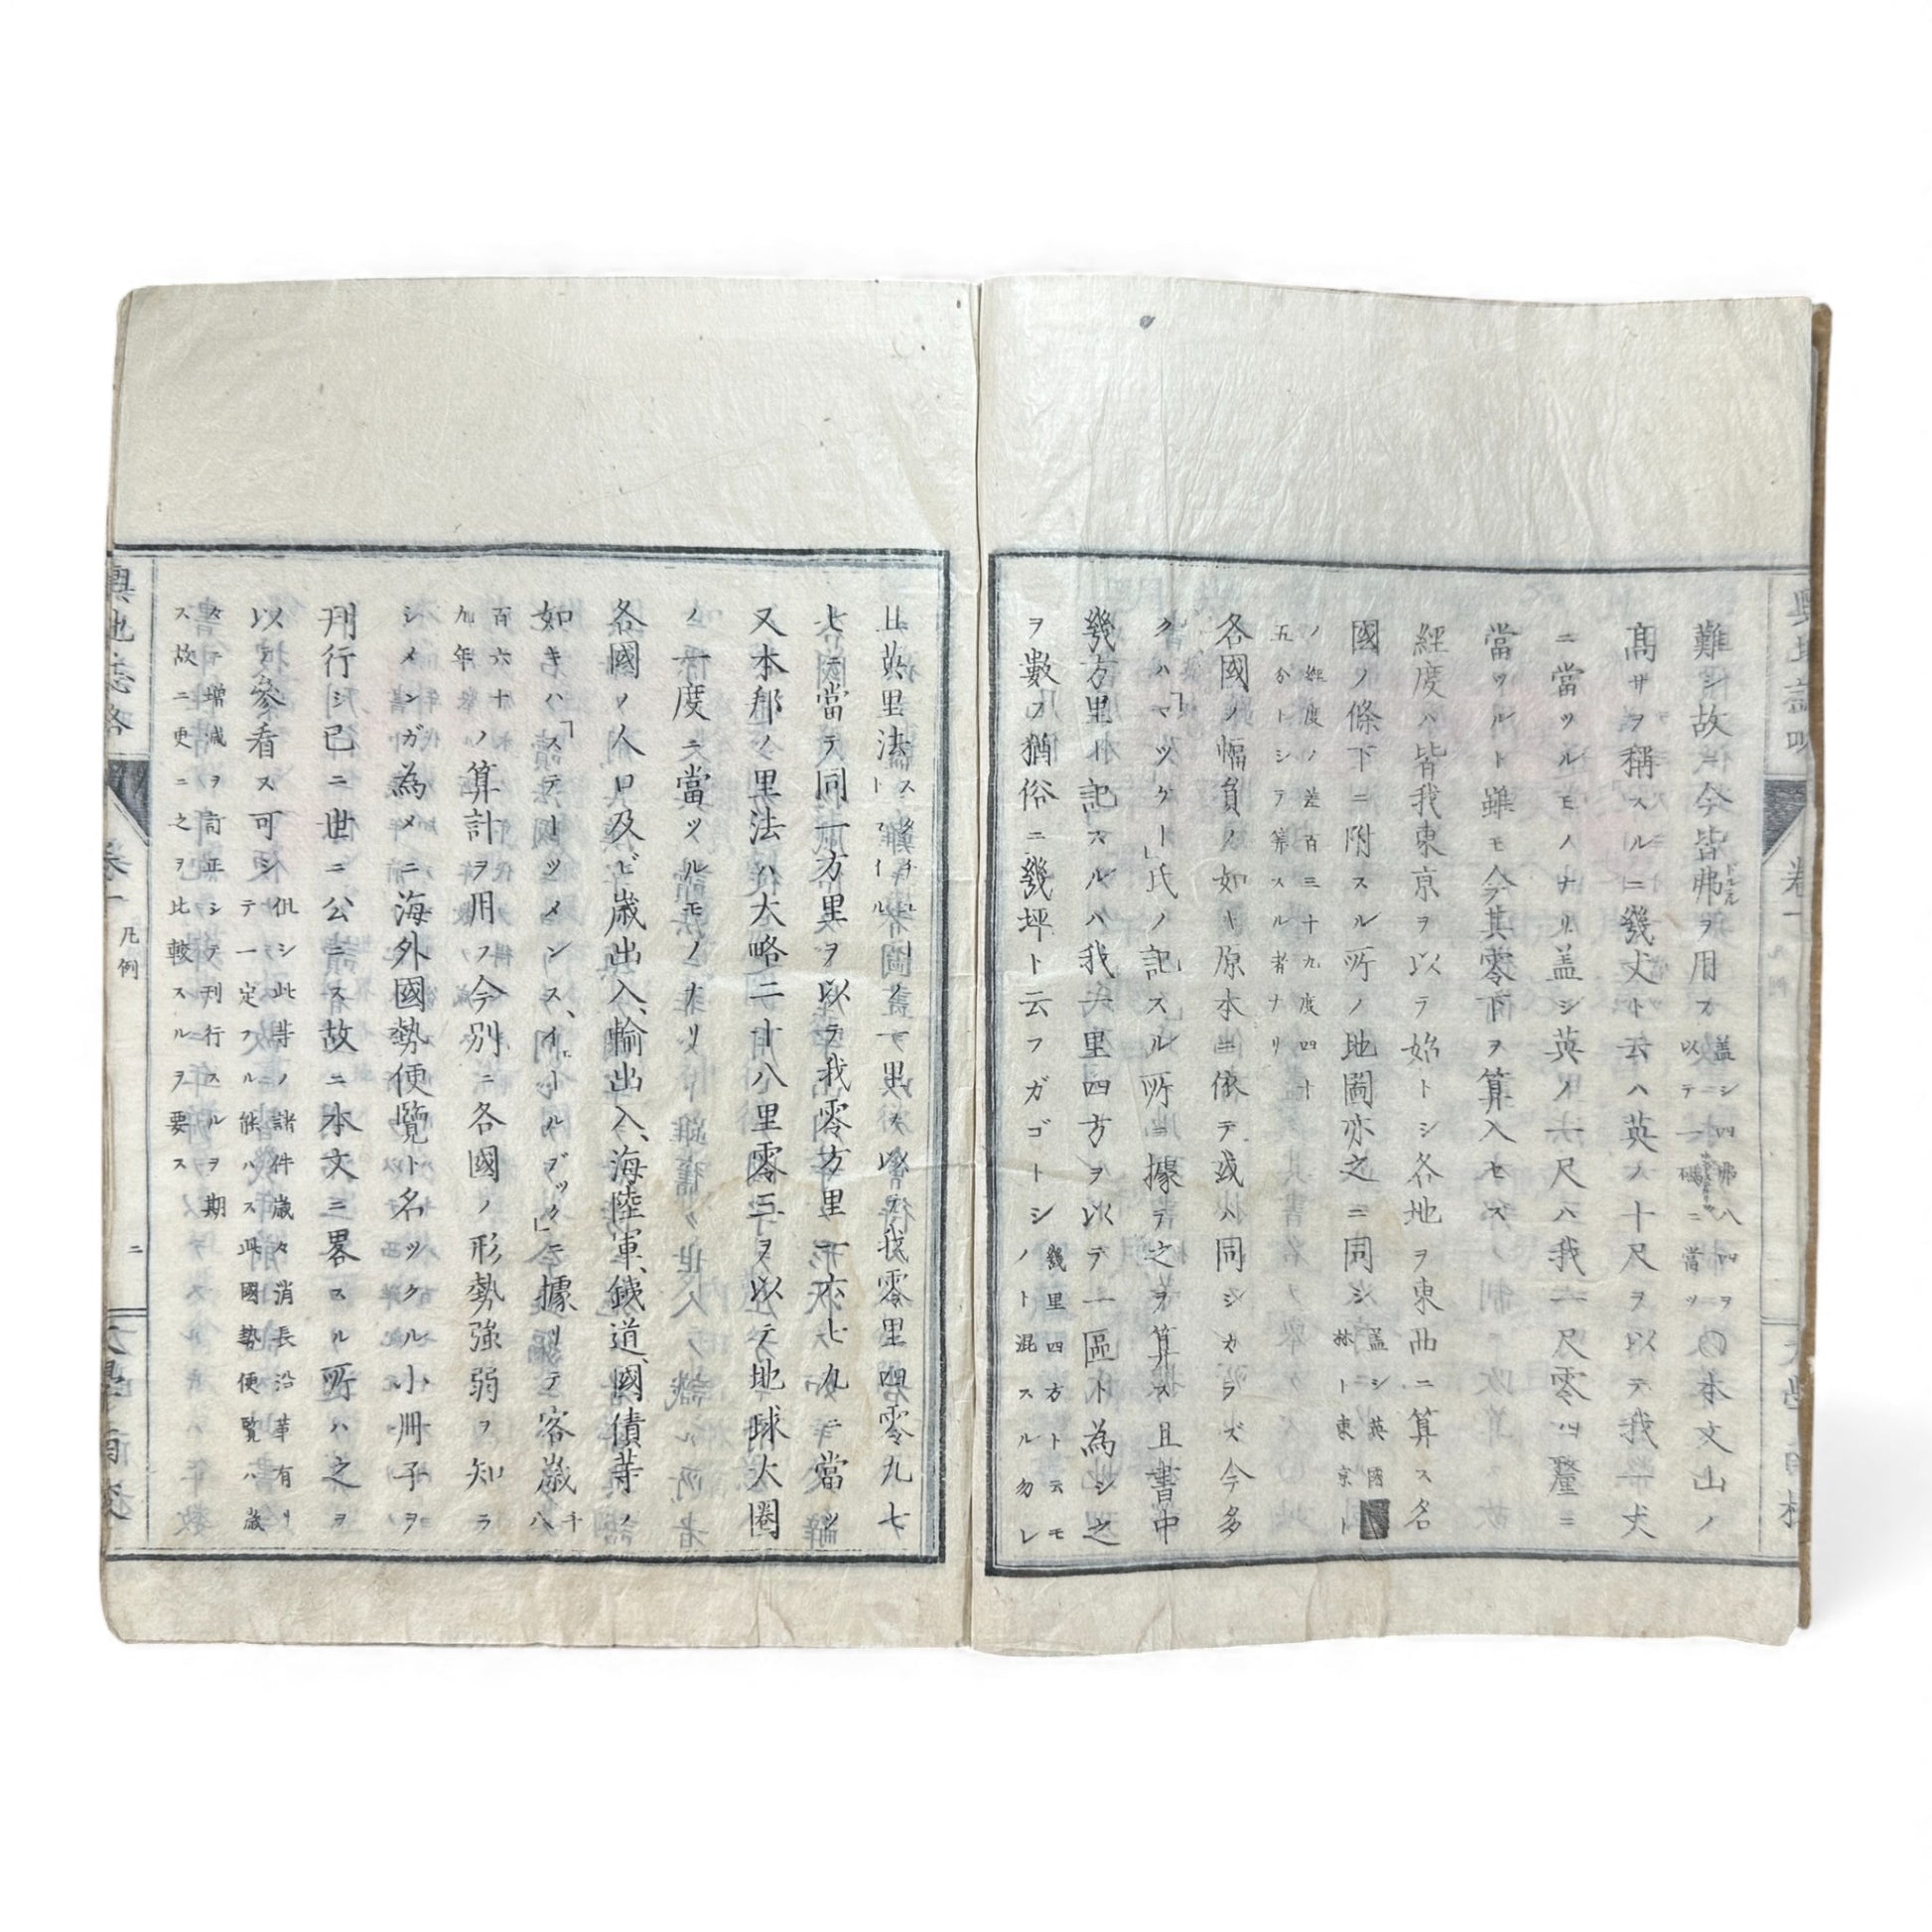 難シ故ニ今皆弗ヲ用フ
ドルラル
蓋シ四弗八四ヲ
以テ一磅ニ當ツ
〇本文山ノ
髙サヲ稱スルニ幾丈ト云ハ英ノ十尺ヲ以テ我一丈
ニ當ツルモノナリ蓋シ英ノ一尺ハ我一尺零ハ釐ニ
當ツルト雖モ今其零下ヲ算入セス
經度ハ皆我東京ヲ以テ始トシ各地ヲ東西ニ算ス名
國ノ條下ニ附スル所ノ地圖亦之ニ同シ
蓋シ英國
林ト東京ト
ノ經度ノ差百三十九度四十
五分トシテ算スル者ナリ
各國ノ幅員ノ如キ原本ニ依テ或ハ同シカラズ今多
クハ「マツケー」氏ノ記スル所ニ據テ之ヲ算ス且書中
幾方里ト記スルハ我一里四方ヲ以テ一區ト為シ之
ヲ數フ猶俗ニ幾坪ト云フガゴトシ
幾里四方ト云モ
ノト混スル勿レ
且英里法
ノ一里ヲ以テ我零里四零九七
七ニ當テ同一方里ヲ以テ我零方里一六七九ニ當ツ
又本邦ノ里法ハ大略二十八里零三ヲ以テ地球大圈
ノ一度ニ當ツルモノナリ
各國ノ人口及ビ歳出入、輸出入、海陸軍、銕道、國債等ノ
如キハ「ステーツメンス、イールブック」ニ據リテ客歳
千八
百六十
九年
ノ算計ヲ用フ今別ニ各國ノ形勢強弱ヲ知ラ
シメンガ為メニ海外國勢便覽ト名ツクル小冊子ヲ
刊行シ已ニ世ニ公ニス故ニ本文ニ畧スル所ハ之ヲ
以テ參看ス可シ
但シ此等ノ諸件歳々消長沿革有リ
テ一定スル能ハス其國勢便覽ハ歳
々ニ增減ヲ訂正シテ刊行スルヲ期
ス故ニ更ニ之ヲ比較スルヲ要ス
卷一
凡例
二